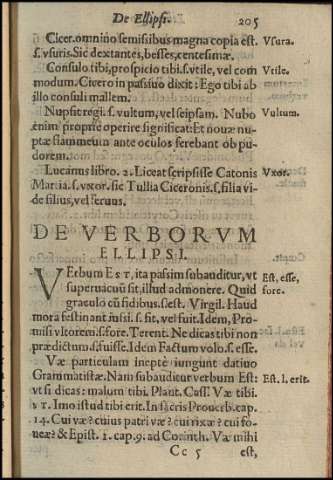 De Ellipsi. 205
Cicer. omnino semissibus magna copia est. Vsura.
s. vsuris. Sic dextantes, besses, centesimæ.
Consulo tibi, prospicio tibi. s. vtile, vel com Vtile.
modum. Cicero in passiuo dixit: Ego tibi ab
illo consuli mallem.
Nupsit regi. s. vultum, vel seipsam. Nubo Vultum.
enim propriè operire significat: Et nouæ nu-
ptæ flammeum ante oculos ferebant ob pu-
dorem.
Lucanus libro. 2. Liceat scripsisse Catonis Vxor.
Martia. s. vxor. sic Tullia Ciceronis. s. filia vi-
de filius, vel seruus.
DE VERBORVM
ELLIPSI.
VErbum EST, ita passim subauditur, vt Est, esse,
superuacuū sit, illud admonere. Quid fore.
graculo cū fidibus. s. est. Virgil. Haud
mora festinant iussi. s. fit, vel fuit. Idem, Pro-
misi vltorem. s. fore. Terent. Ne dicas tibi non
prædictum. s. fuisse. Idem Factum volo. s. esse.
Væ particulam ineptè iungunt datiuo
Grammatistæ. Nam subauditur verbum Est: Est. l. erit.
vt si dicas: malum tibi. Plaut. Cass. Væ tibi.
VT. Imo istud tibi erit. In sacris Prouerb. cap.
14. Cui væ? cuius patri væ? cui rixæ? cui fo-
ueæ? & Epist. 1. cap. 9. ad Corinth. Væ mihi
Cc 5 est,